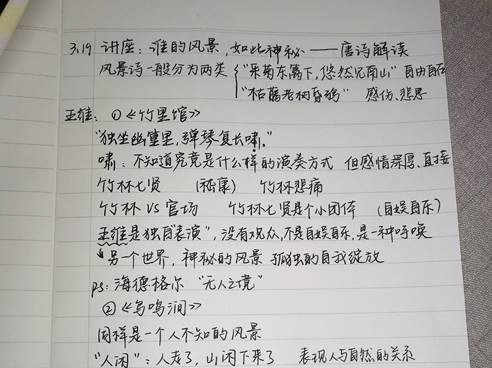 3.19 讲座：谁的风景，如此神秘——唐诗解读
风景诗一般分为两类 { "采菊东篱下，悠然见南山" 自由自在
"枯藤老树昏鸦" 感伤、悲思
王维：①《竹里馆》
"独坐幽篁里，弹琴复长啸。"
啸：不知道究竟是什么样的演奏方式 但感情深厚、直接
竹林七贤 (嵇康) 竹林悲痛
竹林 VS 官场 竹林七贤是个小团体 (自娱自乐)
王维是独自表演"，没有观众，不是自娱自乐，是一种呼唤
另个世界，神秘的风景 孤独的自我绽放
ps：海德格尔 "无人之境"
②《鸟鸣涧》
同样是一个人不知的风景
"人闲"：人走了，山闲下来了 表现人与自然的关系